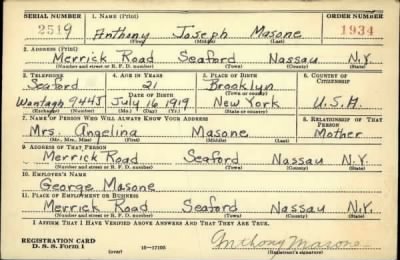 SERIAL NUMBER 1. NAME (Print) ORDER NUMBER
2519 Anthony Joseph Masone 1934
(First) (Middle) (Last)
2. ADDRESS (Print)
Merrick Road Seaford Nassau N.Y.
(Number and street or R. F. D. number) (Town) (County) (State)
3. TELEPHONE 4. AGE IN YEARS 5. PLACE OF BIRTH 6. COUNTRY OF CITIZENSHIP
Seaford 21 Brooklyn
DATE OF BIRTH (Town or county)
Wantagh 944J July 16 1919 New York U.S.A.
(Exchange) (Number) (Mo.) (Day) (Yr.) (State or country)
7. NAME OF PERSON WHO WILL ALWAYS KNOW YOUR ADDRESS 8. RELATIONSHIP OF THAT PERSON
Mrs. Angelina Masone Mother
(Mr., Mrs., Miss) (First) (Middle) (Last)
9. ADDRESS OF THAT PERSON
Merrick Road Seaford Nassau N.Y.
(Number and street or R. F. D. number) (Town) (County) (State)
10. EMPLOYER'S NAME
George Masone
11. PLACE OF EMPLOYMENT OR BUSINESS
Merrick Road Seaford Nassau N.Y.
(Number and street or R. F. D. number) (Town) (County) (State)
I AFFIRM THAT I HAVE VERIFIED ABOVE ANSWERS AND THAT THEY ARE TRUE.
REGISTRATION CARD Anthony Masone
D. S. S. Form 1 (over) 16-17105 (Registrant's signature)